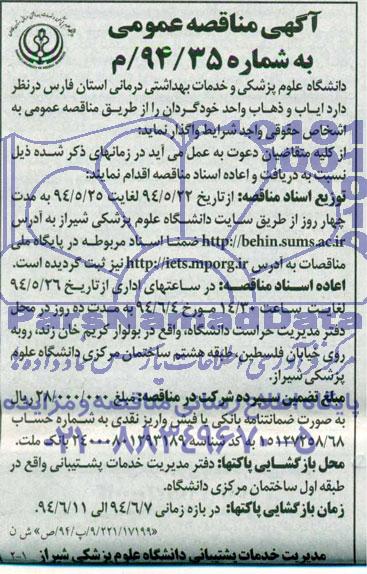 آگهی مناقصه عمومی
به شماره ۹۴/۳۵/م
دانشگاه علوم پزشکی و خدمات بهداشتی درمانی استان فارس درنظر
دارد ایاب و ذهاب واحد خودگردان را از طریق مناقصه عمومی به
اشخاص حقوقی واجد شرایط واگذار نماید:
از کلیه متقاضیان دعوت به عمل می آید در زمانهای ذکر شده ذیل
نسبت به دریافت و اعاده اسناد مناقصه اقدام نمایند:
توزیع اسناد مناقصه: ازتاریخ ۹۴/۵/۲۲ لغایت ۹۴/۵/۲۵ به مدت
چهار روز از طریق سایت دانشگاه علوم پزشکی شیراز به آدرس
http://behin.sums.ac.ir ضمنا اسناد مربوطه در پایگاه ملی
مناقصات به آدرس http://iets.mporg.ir نیز ثبت گردیده است.
اعاده اسناد مناقصه: در ساعتهای اداری ازتاریخ ۹۴/۵/۲۶
لغایت ساعت ۱۴/۳۰ مورخ ۹۴/۶/۴ به مدت ده روز در محل
دفتر مدیریت حراست دانشگاه، واقع در بولوار کریم خان زند، روبه
روی خیابان فلسطین، طبقه هشتم ساختمان مرکزی دانشگاه علوم
پزشکی شیراز.
مبلغ تضمین سپرده شرکت در مناقصه: مبلغ ۲۸/۰۰۰/۰۰۰ ریال
به صورت ضمانتنامه بانکی یا فیش واریز نقدی به شماره حساب
۱۵۱۲۷۲۵۸/۶۸ به کد شناسه ۲۴۰۰۰۸۰۱۲۹۳۱۸۹ بانک ملت.
محل بازگشایی پاکتها: دفتر مدیریت خدمات پشتیبانی واقع در
طبقه اول ساختمان مرکزی دانشگاه.
زمان بازگشایی پاکتها: در بازه زمانی ۹۴/۶/۷ الی ۹۴/۶/۱۱.
«۹/۲۲۱/۱۷۱۹۹/پ/۹۴/ص» ش ن
مدیریت خدمات پشتیبانی دانشگاه علوم پزشکی شیراز ۱-۲